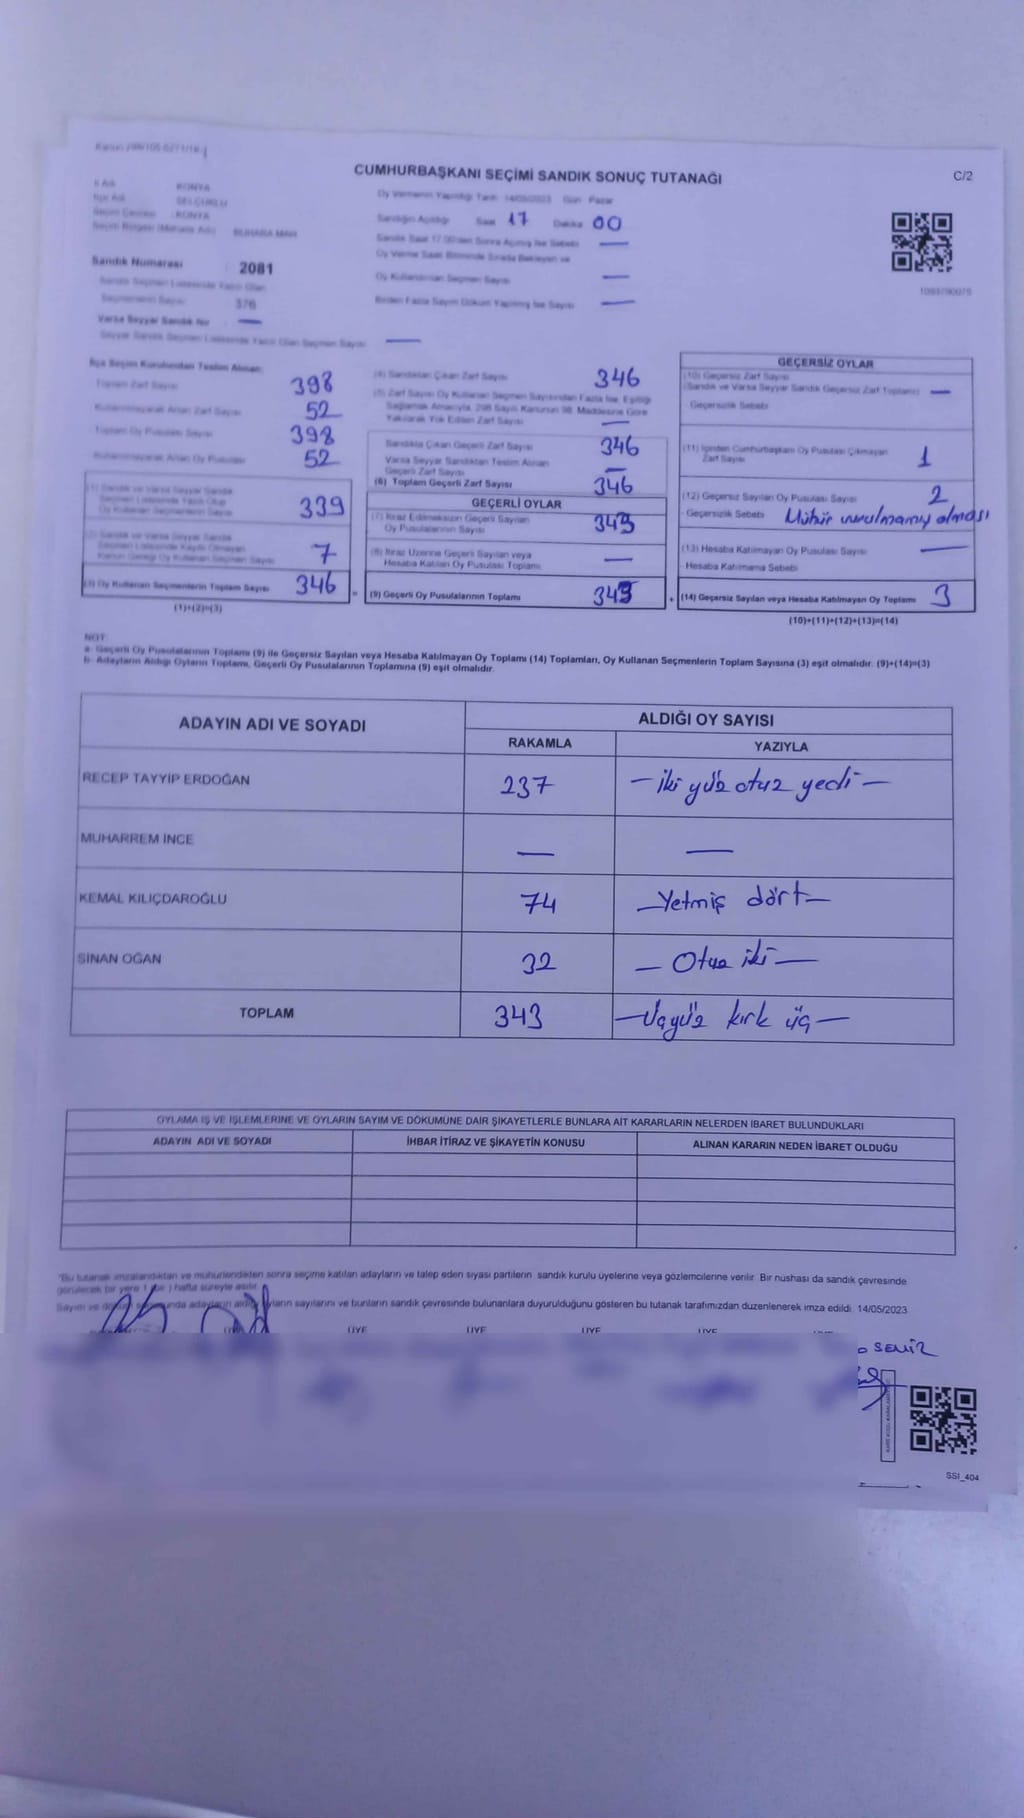 CUMHURBAŞKANI SEÇİMİ SANDIK SONUÇ TUTANAĞI
C/2
İl Adı KONYA
İlçe Adı SELÇUKLU
Seçim Çevresi KONYA
Seçim Bölgesi (Mahalle Adı) BUHARA MAH
Sandık Numarası : 2081
Sandık Seçmen Listesinde Yazılı Olan
Seçmenlerin Sayısı 376
Varsa Seyyar Sandık No —
Seyyar Sandık Seçmen Listesinde Yazılı Olan Seçmen Sayısı —
Oy Vermenin Yapıldığı Tarih 14/05/2023 Gün Pazar
Sandığın Açıldığı Saat 17 Dakika 00
Sandık Saat 17.00'den Sonra Açılmış İse Sebebi —
Oy Verme Saati Bitiminde Sırada Bekleyen ve
Oy Kullandırılan Seçmen Sayısı —
Birden Fazla Sayım Döküm Yapılmış İse Sayısı —
İlçe Seçim Kurulundan Teslim Alınan:
Toplam Zarf Sayısı 398
Kullanılmayarak Artan Zarf Sayısı 52
Toplam Oy Pusulası Sayısı 398
Kullanılmayarak Artan Oy Pusulası 52
(1) Sandık ve Varsa Seyyar Sandık
Seçmen Listesinde Yazılı Olup
Oy Kullanan Seçmenlerin Sayısı 339
(2) Sandık ve Varsa Seyyar Sandık
Seçmen Listesinde Kayıtlı Olmayan
Kanun Gereği Oy Kullanan Seçmen Sayısı 7
(3) Oy Kullanan Seçmenlerin Toplam Sayısı 346
(1)+(2)=(3)
(4) Sandıktan Çıkan Zarf Sayısı 346
(5) Zarf Sayısı Oy Kullanan Seçmen Sayısından Fazla İse, Eşitliği
Sağlamak Amacıyla, 298 Sayılı Kanunun 98. Maddesine Göre
Yakılarak Yok Edilen Zarf Sayısı —
Sandıkta Çıkan Geçerli Zarf Sayısı 346
Varsa Seyyar Sandıktan Teslim Alınan
Geçerli Zarf Sayısı —
(6) Toplam Geçerli Zarf Sayısı 346
GEÇERLİ OYLAR
(7) İtiraz Edilmeksizin Geçerli Sayılan
Oy Pusulalarının Sayısı 343
(8) İtiraz Üzerine Geçerli Sayılan veya
Hesaba Katılan Oy Pusulası Toplamı —
= (9) Geçerli Oy Pusulalarının Toplamı 343
GEÇERSİZ OYLAR
(10) Geçersiz Zarf Sayısı
(Sandık ve Varsa Seyyar Sandık Geçersiz Zarf Toplamı) —
Geçersizlik Sebebi
(11) İçinden Cumhurbaşkanı Oy Pusulası Çıkmayan
Zarf Sayısı 1
(12) Geçersiz Sayılan Oy Pusulası Sayısı 2
Geçersizlik Sebebi Mühür vurulmamış olması
(13) Hesaba Katılmayan Oy Pusulası Sayısı —
Hesaba Katılmama Sebebi
+ (14) Geçersiz Sayılan veya Hesaba Katılmayan Oy Toplamı 3
(10)+(11)+(12)+(13)=(14)
NOT:
a- Geçerli Oy Pusulalarının Toplamı (9) ile Geçersiz Sayılan veya Hesaba Katılmayan Oy Toplamı (14) Toplamları, Oy Kullanan Seçmenlerin Toplam Sayısına (3) eşit olmalıdır. (9)+(14)=(3)
b- Adayların Aldığı Oyların Toplamı, Geçerli Oy Pusulalarının Toplamına (9) eşit olmalıdır.
ADAYIN ADI VE SOYADI ALDIĞI OY SAYISI
RAKAMLA YAZIYLA
RECEP TAYYİP ERDOĞAN 237 — iki yüz otuz yedi —
MUHARREM İNCE — —
KEMAL KILIÇDAROĞLU 74 — Yetmiş dört —
SİNAN OĞAN 32 — Otuz iki —
TOPLAM 343 — Üçyüz kırk üç —
OYLAMA İŞ VE İŞLEMLERİNE VE OYLARIN SAYIM VE DÖKÜMÜNE DAİR ŞİKAYETLERLE BUNLARA AİT KARARLARIN NELERDEN İBARET BULUNDUKLARI
ADAYIN ADI VE SOYADI İHBAR İTİRAZ VE ŞİKAYETİN KONUSU ALINAN KARARIN NEDEN İBARET OLDUĞU
*Bu tutanak imzalandıktan ve mühürlendikten sonra seçime katılan adayların ve talep eden siyasi partilerin sandık kurulu üyelerine veya gözlemcilerine verilir. Bir nüshası da sandık çevresinde
görülecek bir yere 1 ( bir ) hafta süreyle asılır.
Sayım ve döküm sonunda adayların aldığı oyların sayılarını ve bunların sandık çevresinde bulunanlara duyurulduğunu gösteren bu tutanak tarafımızdan düzenlenerek imza edildi. 14/05/2023
ÜYE ÜYE ÜYE ÜYE
SEMİZ
SSI_404